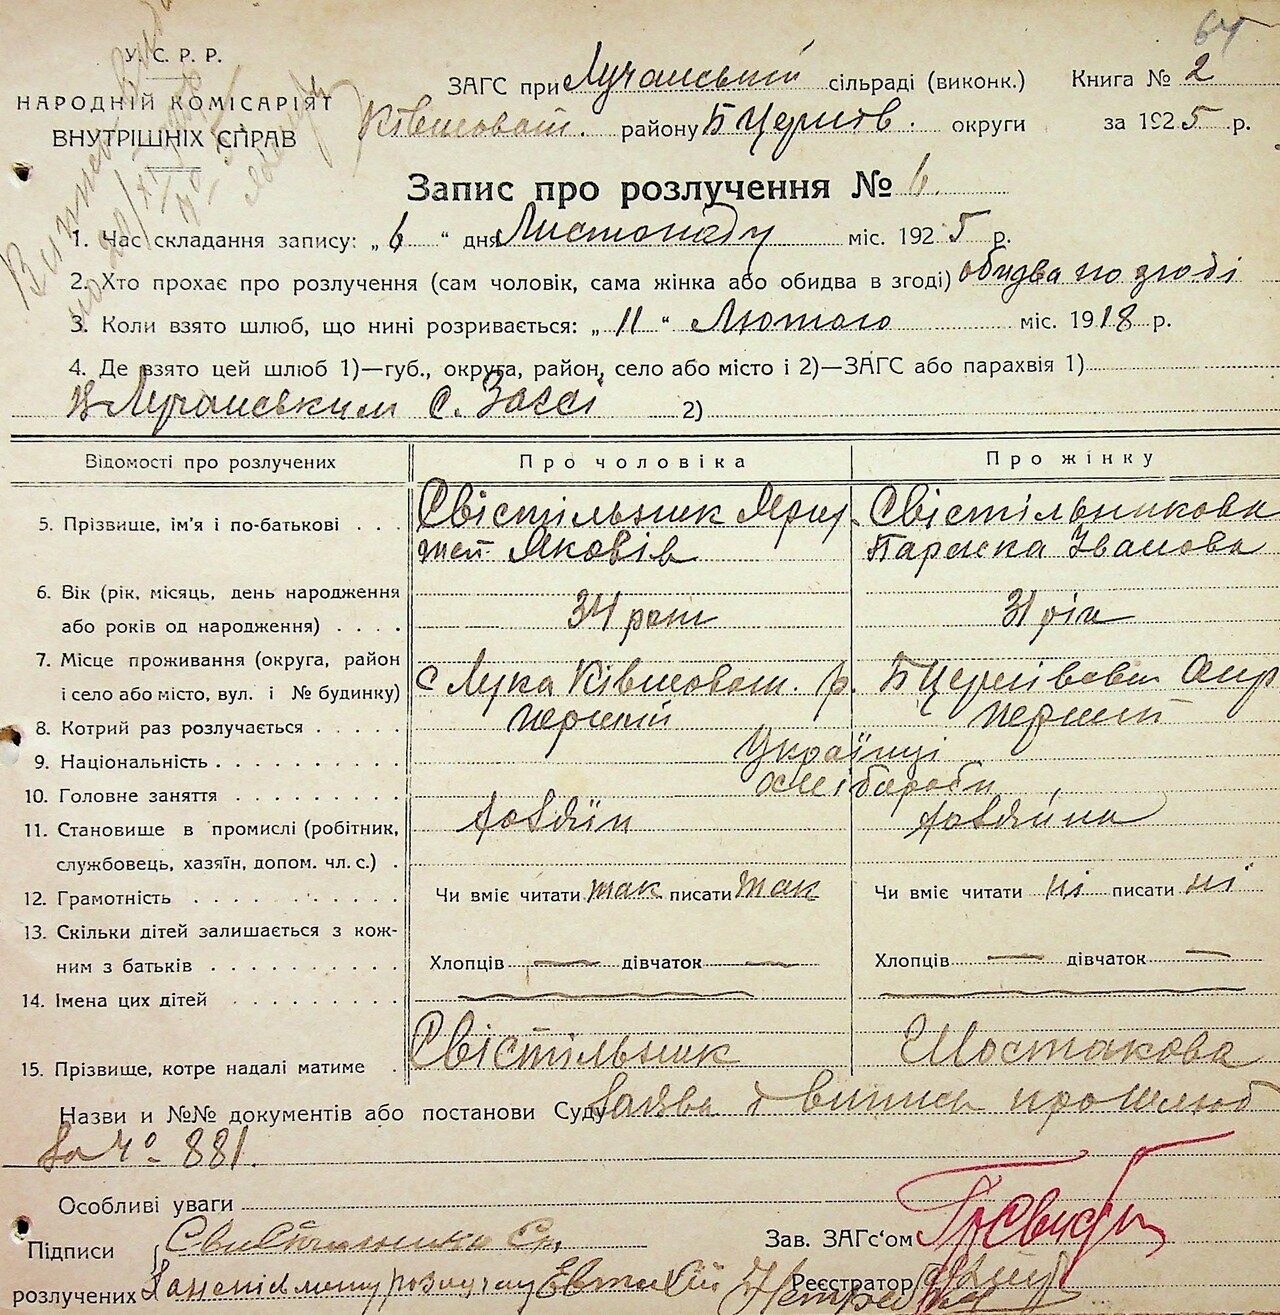 64
У. С. Р. Р.
НАРОДНІЙ КОМІСАРІЯТ
ВНУТРІШНІХ СПРАВ
ЗАГС при Лучанській сільраді (виконк.) Книга № 2
Ківшоват. району Б Церків. округи за 1925 р.
Запис про розлучення № 6.
1. Час складання запису: „6“ дня Листопаду міс. 1925 р.
2. Хто прохає про розлучення (сам чоловік, сама жінка або обидва в згоді) обидва по згоді
3. Коли взято шлюб, що нині розривається: „11“ Лютого міс. 1918 р.
4. Де взято цей шлюб 1)—губ., округа, район, село або місто і 2)—ЗАГС або парахвія 1)
В Лучанським С. Заґсі 2)
Відомості про розлучених Про чоловіка Про жінку
5. Прізвище, ім'я і по-батькові . . . Свістільник Яковів Свістільникова
Параска Іванова
6. Вік (рік, місяць, день народження
або років од народження) . . . . 34 роки 31 рік
7. Місце проживання (округа, район
і село або місто, вул. і № будинку) с Лука Ківшоват. р. Б Церківської Окр
8. Котрий раз розлучається . . . . . перший перший
9. Національність . . . . . . . . . . Українці
10. Головне заняття . . . . . . . . . хліброби
11. Становище в промислі (робітник,
службовець, хазяїн, допом. чл. с.) . хазяїн хазяйка
12. Грамотність . . . . . . . . . . Чи вміє читати так писати так Чи вміє читати ні писати ні
13. Скільки дітей залишається з кож-
ним з батьків . . . . . . . . . . Хлопців — дівчаток — Хлопців — дівчаток —
14. Імена цих дітей . . . . . . . . .
15. Прізвище, котре надалі матиме . Свістільник Шостакова
Назви и №№ документів або постанови Суду Заява і випись про шлюб
За № 881.
Особливі уваги
Підписи Зав. ЗАГс'ом
розлучених Реєстратор